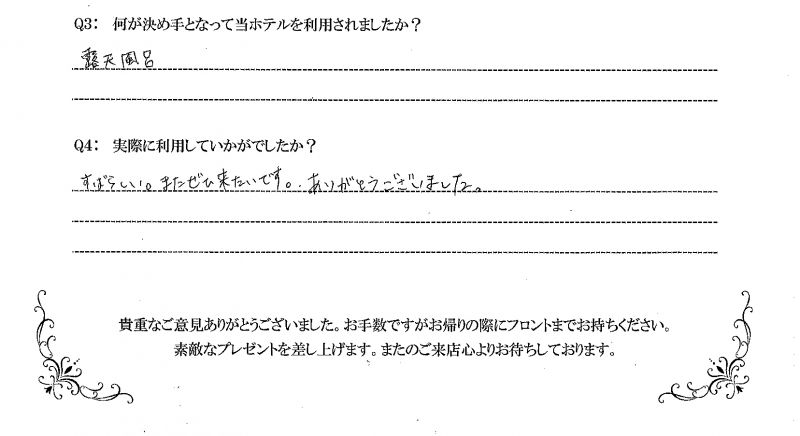 Q3: 何が決め手となって当ホテルを利用されましたか?
露天風呂
Q4: 実際に利用していかがでしたか?
すばらしい。またぜひ来たいです。ありがとうございました。
貴重なご意見ありがとうございました。お手数ですがお帰りの際にフロントまでお持ちください。
素敵なプレゼントを差し上げます。またのご来店心よりお待ちしております。